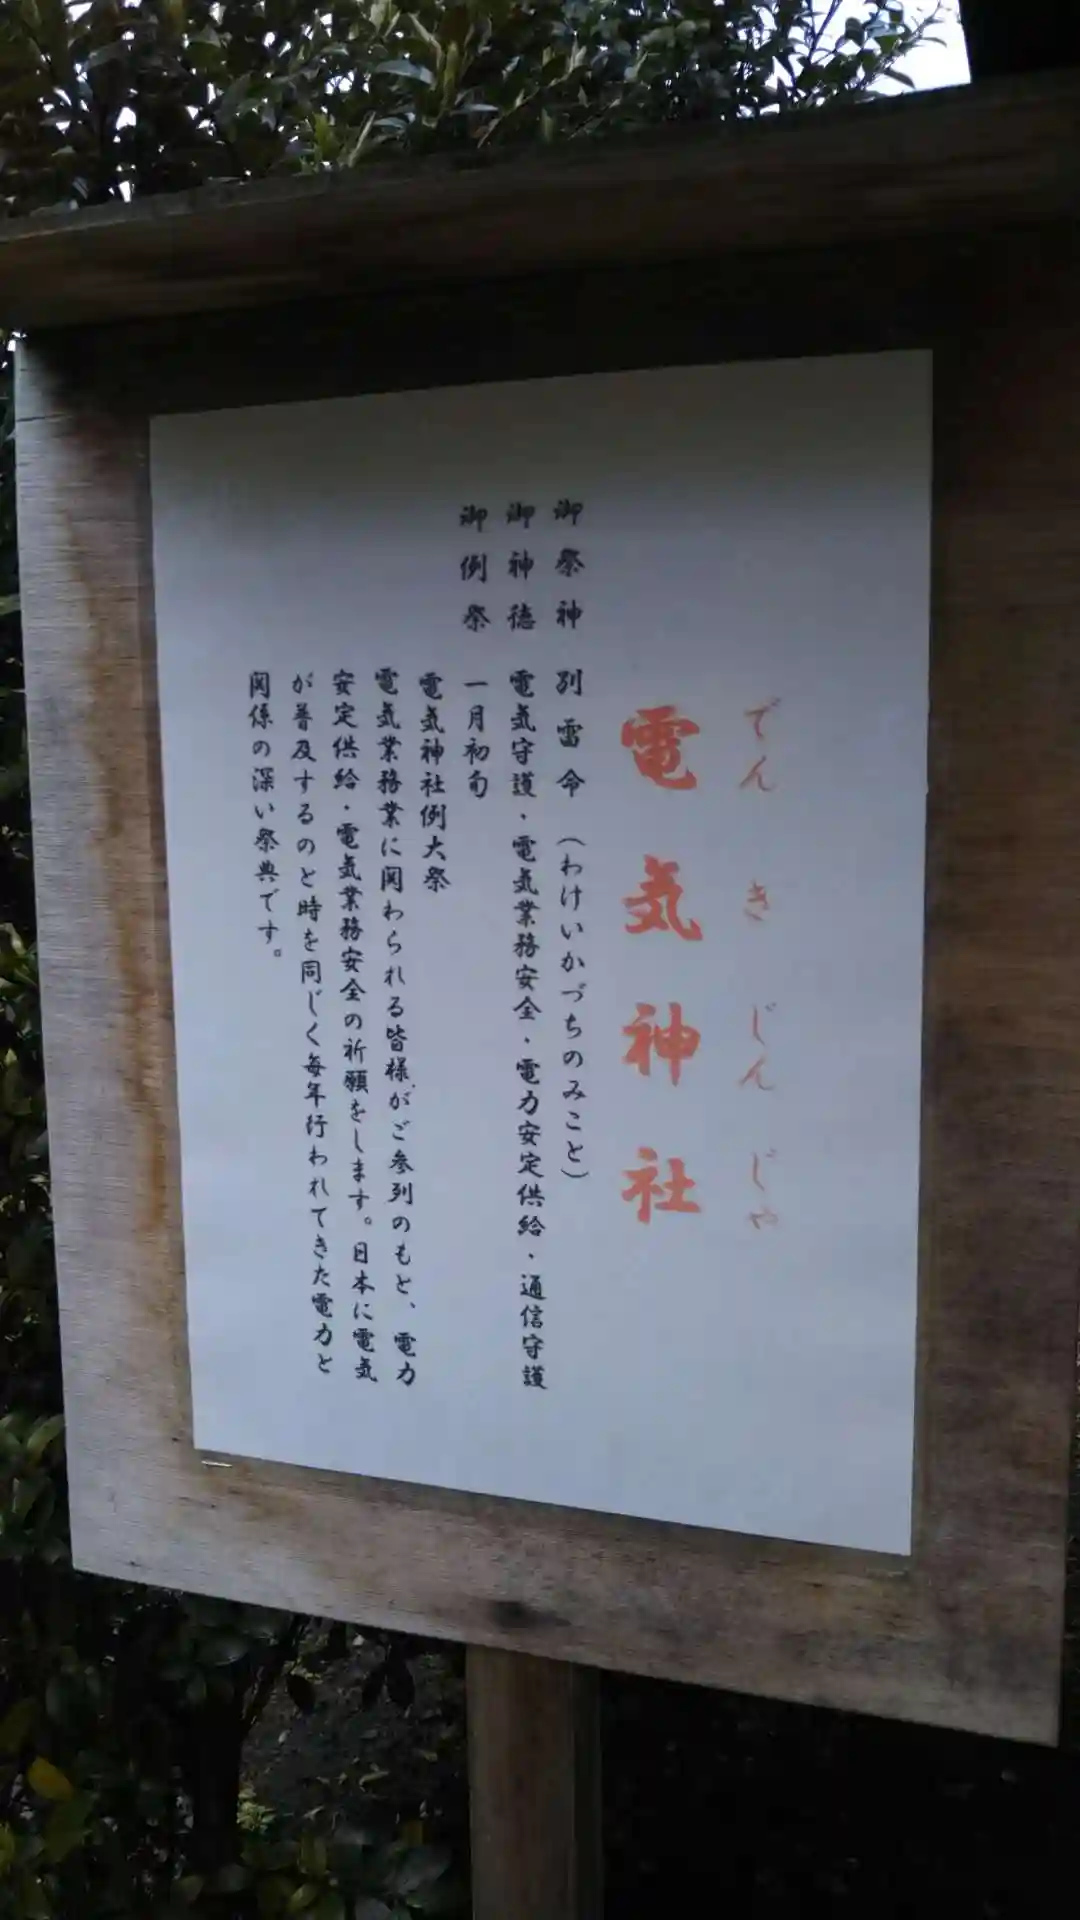 でんきじんじゃ
電気神社
御祭神 別雷命（わけいかづちのみこと）
御神徳 電気守護・電気業務安全・電力安定供給・通信守護
御例祭 一月初旬
電気神社例大祭
電気業務業に関わられる皆様がご参列のもと、電力
安定供給・電気業務安全の祈願をします。日本に電気
が普及するのと時を同じく毎年行われてきた電力と
関係の深い祭典です。